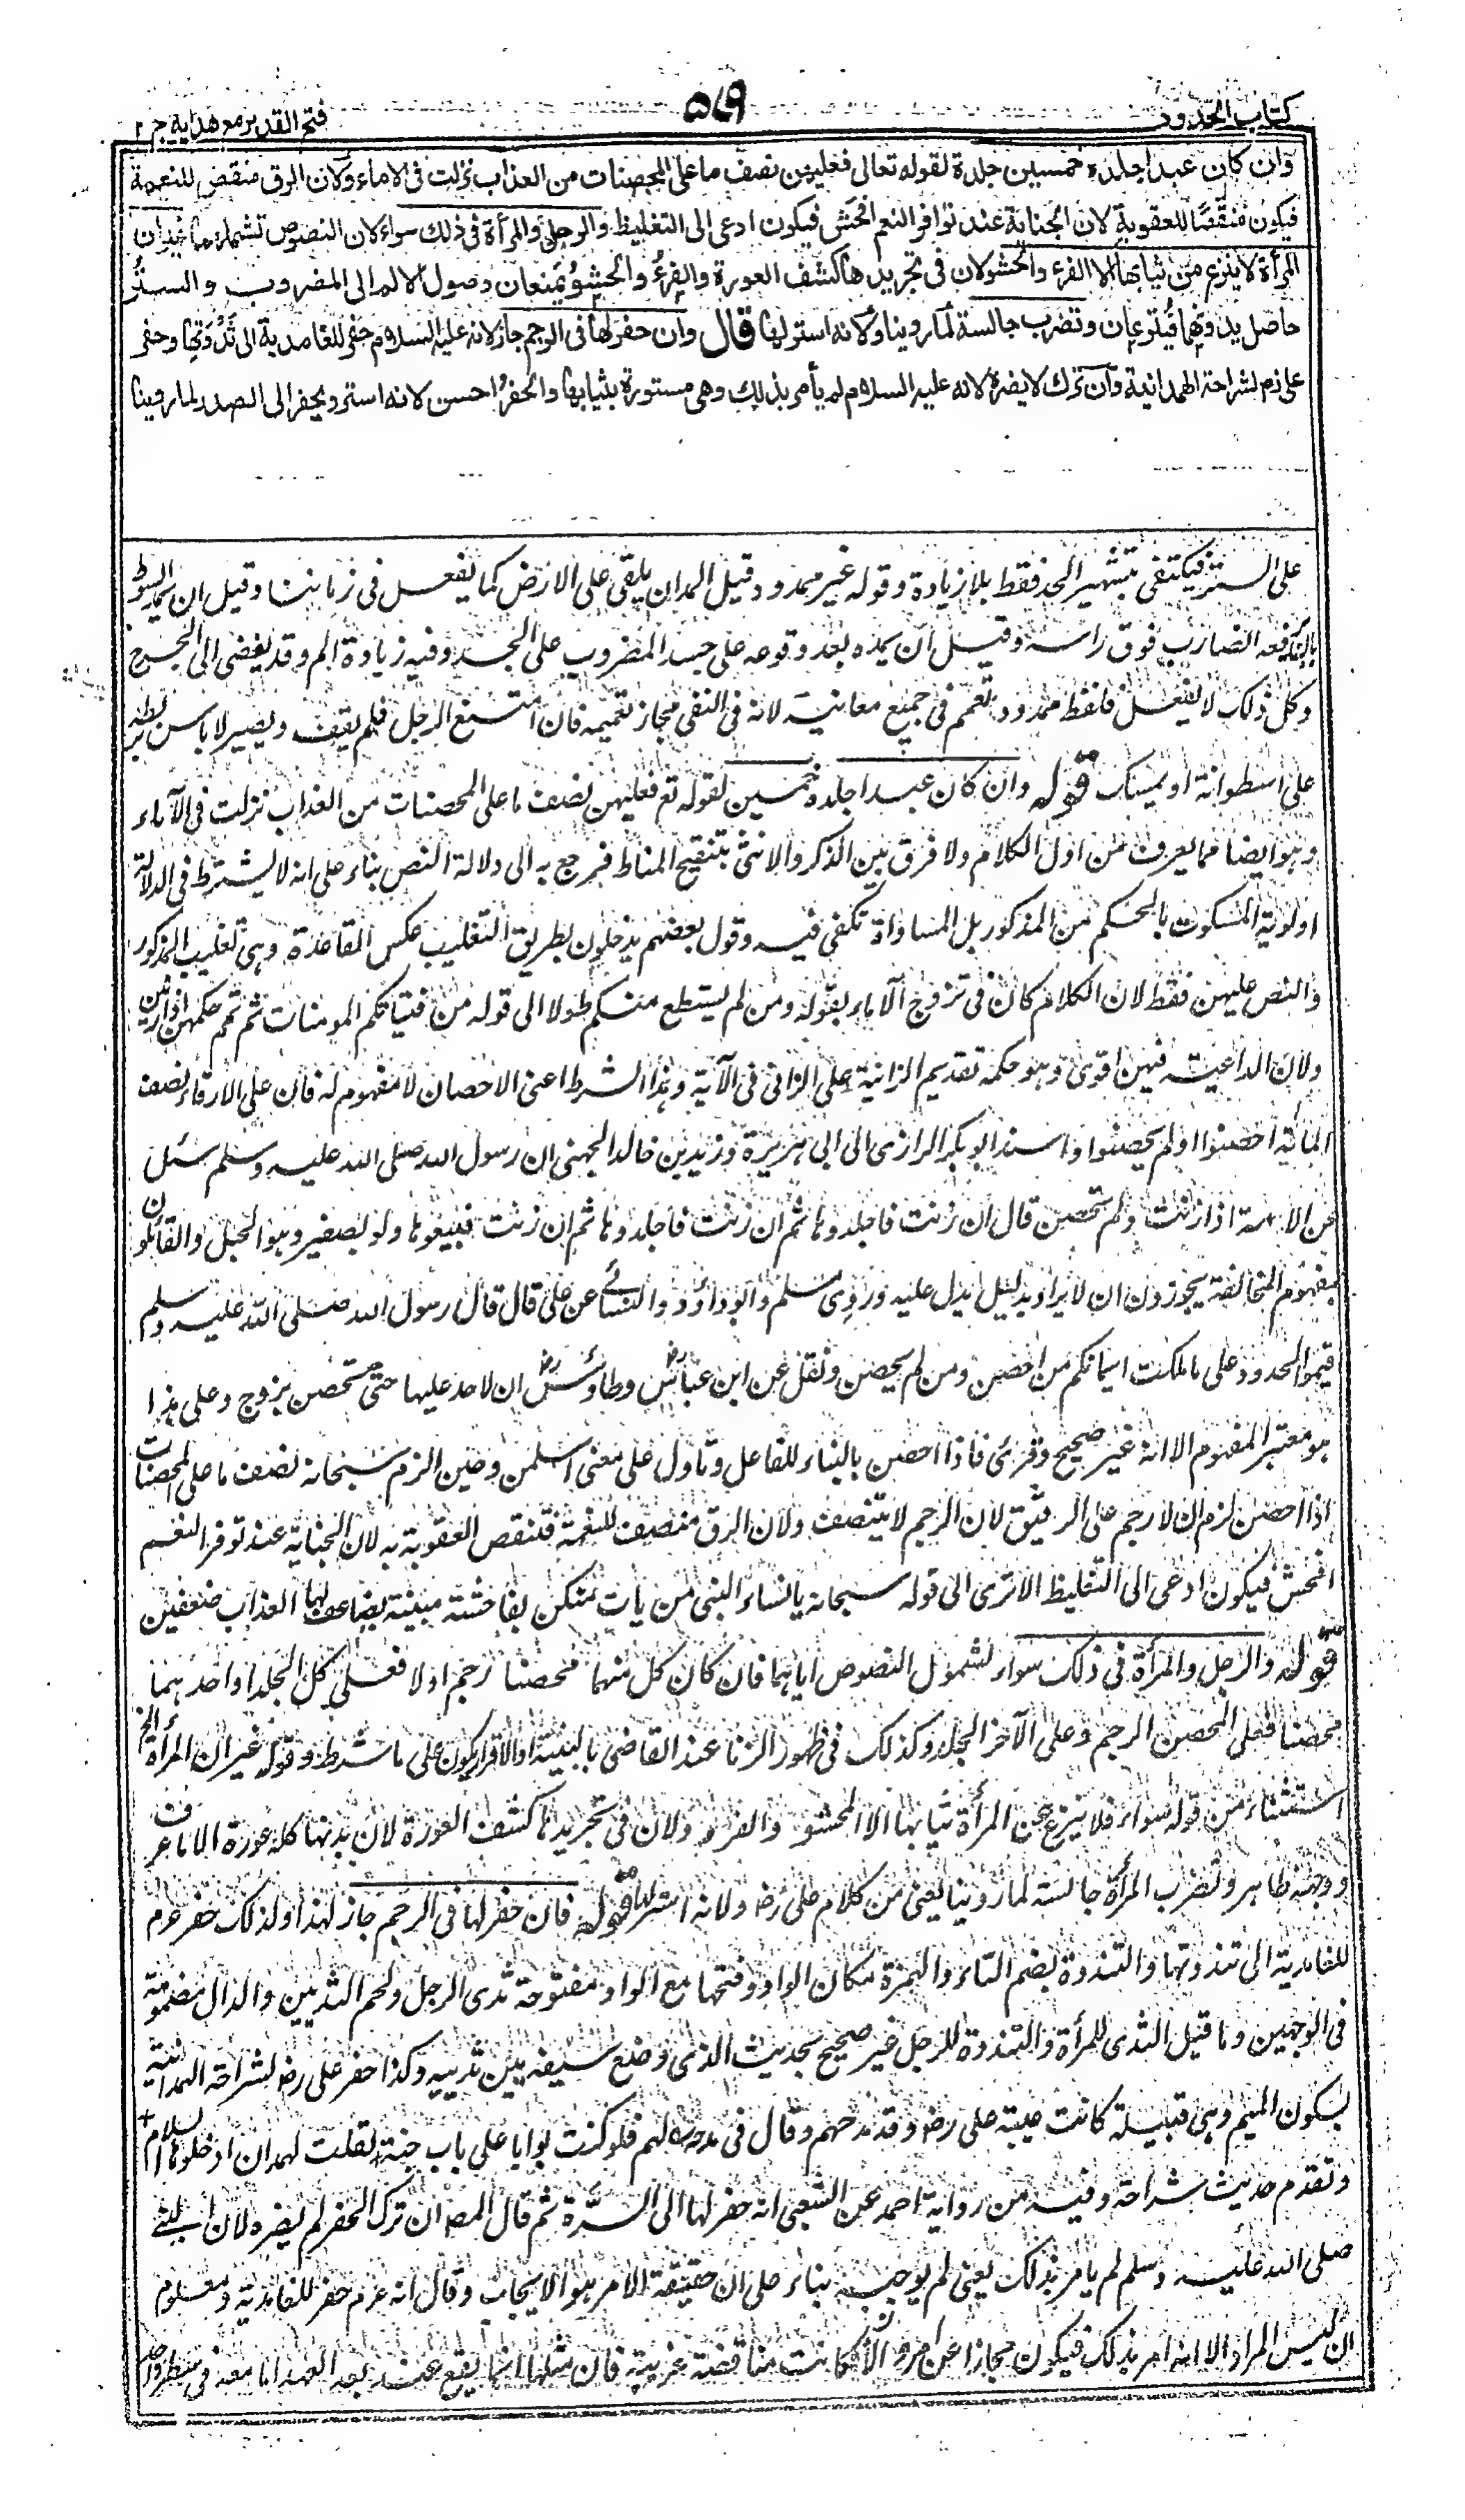 كتاب الحدود
۵۷۹
فتح القدير مع هداية ج ۲
وان كان عبدا جلده خمسين جلدة لقوله تعالى فعليهن نصف ما على المحصنات من العذاب نزلت فى الاماء ولان الرق منقص للنعمة
فيكون منقصا للعقوبة لان الجناية عند توافر النعم افحش فيكون ادعى الى التغليظ والرجل والمرأة فى ذلك سواء لان النصوص تشملهما غيران
المرأة لا ينزع من ثيابها الا الفرء والحشو لان فى تجريدها كشف العورة والفرء والحشو يمنعان وصول الالم الى المضروب والستر
حاصل بدونهما فينزعان وتضرب جالسة لما روينا ولانه استر لها قال وان حفر لها فى الرجم جاز لانه عليه السلام حفر للغامدية الى ثندوتها وحفر
على رضـ لشراحة الهمدانية وان ترك لا يضره لانه عليه السلام لم يأمر بذلك وهى مستورة بثيابها والحفر احسن لانه استر ويحفر الى الصدر لما روينا
على الستر فيكتفى بتشهير الحد فقط بلا زيادة وقوله غير ممدود قيل المد ان يلقى على الارض كما يفعل فى زماننا وقيل ان يمد السوط
بان يرفعه الضارب فوق راسه وقيل ان يمده بعد وقوعه على جسد المضروب على الجسد وفيه زيادة الم وقد يفضى الى الجرح
وكل ذلك لا يفعل فلفظ ممدود تعمم فى جميع معانيه لانه فى النفى فجاز تعميمه فان امتنع الرجل فلم يقف ويصبر لا باس بربطه
على اسطوانة او يمسك قوله وان كان عبدا جلده خمسين لقوله تع فعليهن نصف ما على المحصنات من العذاب نزلت فى الآماء
وهو ايضا مما يعرف من اول الكلام ولا فرق بين الذكر والانثى بتنقيح المناط فيرجع به الى دلالة النص بناء على انه لا يشترط فى الدلالة
اولوية المسكوت بالحكم من المذكور بل المساواة تكفى فيه وقول بعضهم يدخلون بطريق التغليب عكس القاعدة وهى تغليب الذكور
والنص عليهن فقط لان الكلام كان فى تزوج الآماء بقوله ومن لم يستطع منكم طولا الى قوله من فتياتكم المومنات ثم تمم حكمهن اذا زنين
ولان الداعية فيهن اقوى وهو حكمة تقديم الزانية على الزانى فى الآية وهذا الشرط اعنى الاحصان لا مفهوم له فان على الارقاء نصف
المائة احصنوا او لم يحصنوا واسند ابو بكر الرازى الى ابى هريرة وزيد بن خالد الجهنى ان رسول الله صلى الله عليه وسلم سئل
عن الامة اذا زنت ولم تحصن قال ان زنت فاجلدوها ثم ان زنت فاجلدوها ثم ان زنت فبيعوها ولو بضفير وهو الحبل والقائلون
بمفهوم المخالفة يجوزون ان لا يراد بدليل يدل عليه وروى مسلم وابو داؤد والنسائى عن على قال قال رسول الله صلى الله عليه وسلم
قيموا الحدود على ما ملكت ايمانكم من احصن ومن لم يحصن ونقل عن ابن عباس رضـ وطاؤس رضـ ان لا حد عليها حتى تحصن بزوج وعلى هذا
هو معتبر المفهوم الا انه غير صحيح وقرئ فاذا احصن بالبناء للفاعل وتاول على معنى اسلمن وحين الزم سبحانه نصف ما على المحصنات
اذا احصن لزم ان لا رجم على الرقيق لان الرجم لا يتنصف ولان الرق منصف للنعمة فتنقص العقوبة به لان الجناية عند توفر النعم
افحش فيكون ادعى الى التغليظ الا ترى الى قوله سبحانه يا نساء النبى من يات منكن بفاحشة مبينة يضاعف لها العذاب ضعفين
قوله والرجل والمرأة فى ذلك سواء لشمول النصوص اياهما فان كان كل منهما محصنا رجم او لا فعلى كل الجلد او احدهما
محصنا فعلى المحصن الرجم وعلى الآخر الجلد وكذلك فى ظهور الزنا عند القاضى بالبينة او الاقرار يكون على ما شرط وقوله غير ان المرأة الخ
استثناء من قوله سواء فلا ينزع عن المرأة ثيابها الا الحشو والفرو ولان فى تجريدها كشف العورة لان بدنها كله عورة الا ما عرف
ووجهه ظاهر وتضرب المرأة جالسة لما روينا يعنى من كلام على رضـ ولانه استر لها قوله فان حفر لها فى الرجم جاز لهذا ولذلك حفر عم
للغامدية الى ثندوتها والثندوة بضم الثاء والهمزة مكان الواو وفتحها مع الواو مفتوحة ثدى الرجل ولحم الثديين والدال مضمومة
فى الوجهين وما قيل الثدى للمرأة والثندوة للرجل غير صحيح بحديث الذى وضع سيفه بين ثدييه وكذا حفر على رضـ لشراحة الهمدانية
بسكون الميم وهى قبيلة كانت عيبة على رضـ وقد مدحهم وقال فى مدحه لهم فلو كنت بوابا على باب جنة لقلت لهمدان ادخلوها بسلام
وتقدم حديث شراحة وفيه من رواية احمد عن الشعبى انه حفر لها الى السرة ثم قال المصـ ان ترك الحفر لم يضره لان النبى
صلى الله عليه وسلم لم يامر بذلك يعنى لم يوجبه بناء على ان حقيقة الامر هو الايجاب وقال انه عم حفر للغامدية ومعلوم
ان ليس المراد الا انه امر بذلك فيكون مجازا عن امر والا كانت مناقضة غريبة فان مثلها انما يقع عند بعد العهد اما معه فى سطر واحد